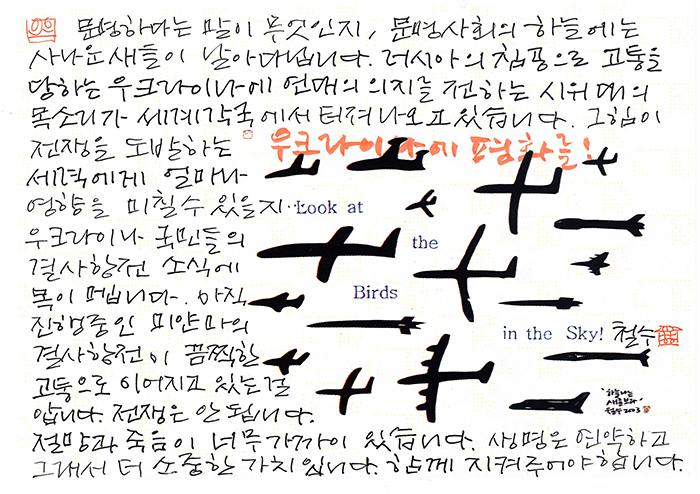 문명하다는 말이 무엇인지, 문명사회의 하늘에는
사나운 새들이 날아다닙니다. 러시아의 침공으로 고통을
당하는 우크라이나에 연대의 의지를 전하는 시위대의
목소리가 세계각국에서 터져나오고 있습니다. 그힘이
전쟁을 도발하는
우크라이나에 평화를!
세력에게 얼마나
영향을 미칠수 있을지..
Look at
우크라이나 국민들의
the
결사항전 소식에
목이 메입니다. 아직
Birds
진행중인 미얀마의
in the Sky! 철수
결사항전이 끔찍한
고통으로 이어지고 있는걸
압니다. 전쟁은 안됩니다.
하늘나는
새를보라
2003
절망과 죽음이 너무가까이 있습니다. 생명은 연약하고
그래서 더 소중한 가치입니다. 함께 지켜주어야합니다.